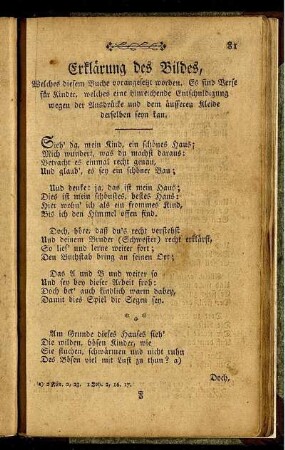 81
Erklärung des Bildes,
Welches diesem Buche vorangesetzt worden. Es sind Verse
für Kinder, welches eine hinreichende Entschuldigung
wegen der Ausdrücke und dem äusseren Kleide
derselben seyn kan.
Sieh' da, mein Kind, ein schönes Haus;
Mich wundert, was du machst daraus:
Betracht es einmal recht genau,
Und glaub', es sey ein schöner Bau;
Und denke ja, das ist mein Haus;
Dies ist mein schönstes, bestes Haus:
Hier wohn' ich als ein frommes Kind,
Bis ich den Himmel offen find.
Doch, höre, daß du's recht verstehst
Und deinem Bruder (Schwester) recht erklärst,
So lies' und lerne weiter fort;
Den Buchstab bring an seinen Ort;
Das A und B und weiter so
Und sey bey dieser Arbeit froh:
Doch bet' auch kindlich warm dabey,
Damit dies Spiel dir Segen sey.
Am Grunde dieses Hauses sieh'
Die wilden, bösen Kinder, wie
Sie fluchen, schwärmen und nicht ruhn
Das Böse viel mit Lust zu thun? a)
2, 23. 2, 16. 17.
Doch,
F